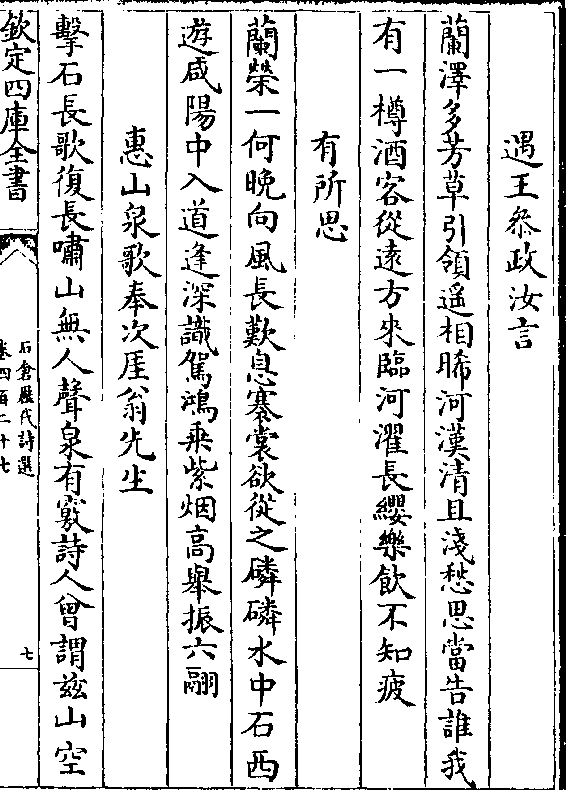 遇王叅政汝言
蘭澤多芳草引領遥相睎河漢清且淺愁思當告誰我
有一樽酒客從逺方來臨河濯長纓樂飲不知疲
有所思
蘭榮一何晩向風長歎息寨裳欲從之磷磷水中石西
遊咸陽中入道逢深識駕鴻乗紫烟高舉振六翮
惠山泉歌奉次厓翁先生
擊石長歌復長嘯山無人聲泉有竅詩人曾謂兹山空
欽定四庫全書
石倉歴代詩選
卷四百二十七
七